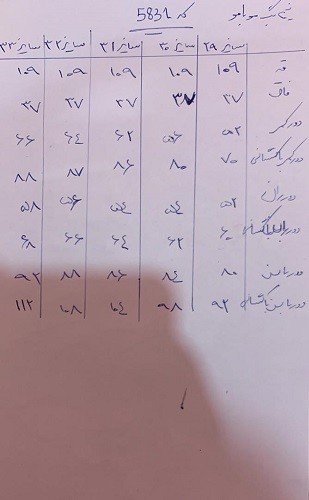 کد 5831
سایز ۲۹ سایز ۳۰ سایز ۳۱ سایز ۳۲ سایز ۳۳
قد ۱۰۹ ۱۰۹ ۱۰۹ ۱۰۹ ۱۰۹
فاق ۳۷ ۳۷ ۳۷ ۳۷ ۳۷
دور کمر ۵۲ ۵۶ ۶۲ ۶۴ ۶۶
دور کمر باکشسانی ۷۰ ۸۰ ۸۶ ۸۷ ۸۸
دور ران ۵۲ ۵۴ ۵۴ ۵۶ ۵۸
دور ران باکشسان ۶۰ ۶۲ ۶۴ ۶۶ ۶۸
دور باسن ۸۰ ۸۴ ۸۶ ۸۸ ۹۲
دور باسن باکشسان ۹۲ ۹۸ ۱۰۴ ۱۰۸ ۱۱۲